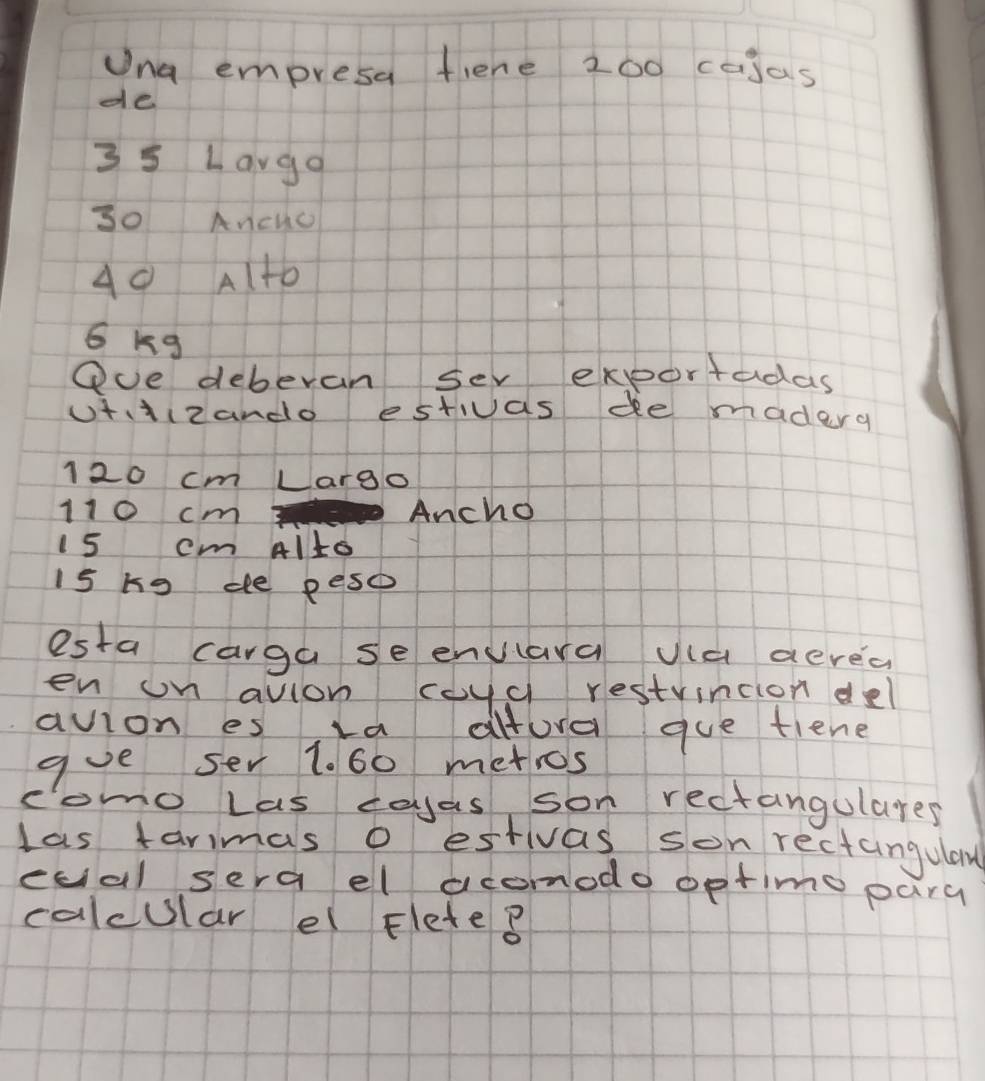 Una empresa tiene 200 cajas
de
35 Largo
30 Ancho
40 Alto
6 kg
Que deberan ser exportadas
utilizando estivas de madera
120 cm Largo
110 cm Ancho
15 cm Alto
15 kg de peso
esta carga se enviara via aerea
en un avion cuya restrincion del
avion es La altura que tiene
que ser 1.60 metros
como Las cajas son rectangulares
Las tarimas o estivas son rectangular
cual sera el acomodo optimo para
calcular el Flete?